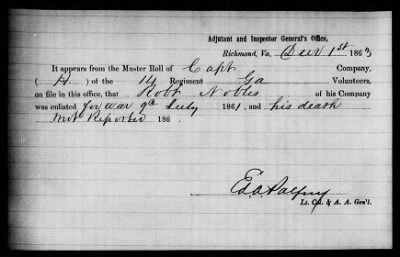 Adjutant and Inspector General's Office,
Richmond, Va., Decr 1st 1863
It appears from the Muster Roll of Capt Company,
(A) of the 14 Regiment Ga Volunteers,
on file in this office, that Robt Nobles of his Company
was enlisted for war 9th July 1861, and his death
not Reported 186 .
Lt. Col. & A. A. Gen'l.